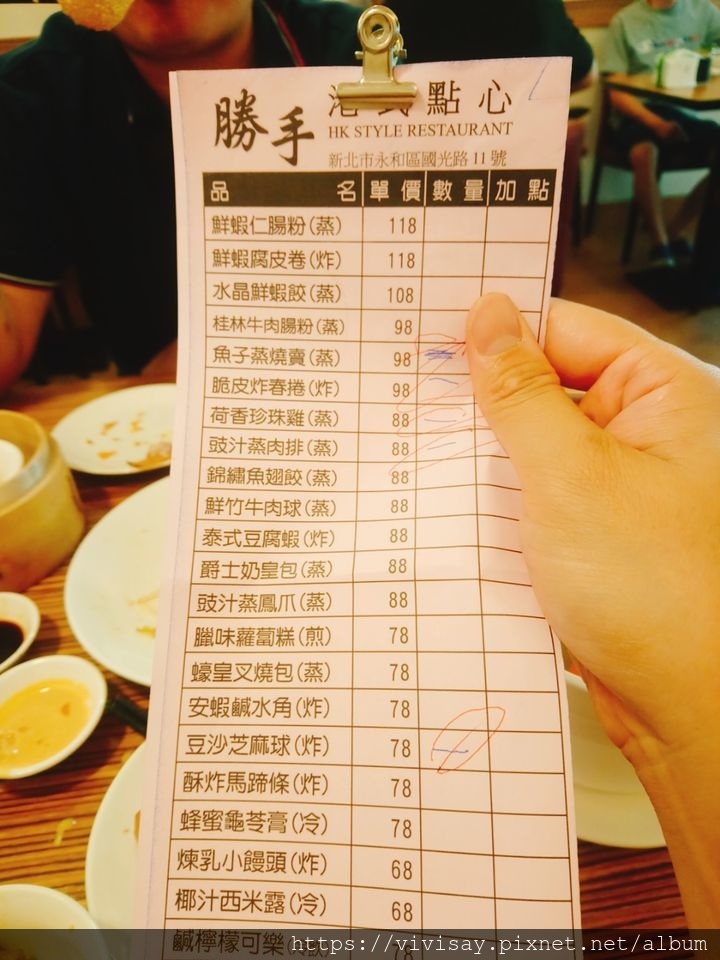 勝手 港式點心
HK STYLE RESTAURANT
新北市永和區國光路11號
品名 單價 數量 加點
鮮蝦仁腸粉(蒸) 118
鮮蝦腐皮卷(炸) 118
水晶鮮蝦餃(蒸) 108
桂林牛肉腸粉(蒸) 98
魚子蒸燒賣(蒸) 98
脆皮炸春捲(炸) 98 一
荷香珍珠雞(蒸) 88 一
豉汁蒸肉排(蒸) 88 一
錦繡魚翅餃(蒸) 88
鮮竹牛肉球(蒸) 88
泰式豆腐蝦(炸) 88
爵士奶皇包(蒸) 88
豉汁蒸鳳爪(蒸) 88
臘味蘿蔔糕(煎) 78
蠔皇叉燒包(蒸) 78
安蝦鹹水角(炸) 78
豆沙芝麻球(炸) 78 一
酥炸馬蹄條(炸) 78
蜂蜜龜苓膏(冷) 78
煉乳小饅頭(炸) 68
椰汁西米露(冷) 68
鹹檸檬可樂
https://vivisay.pixnet.net/album